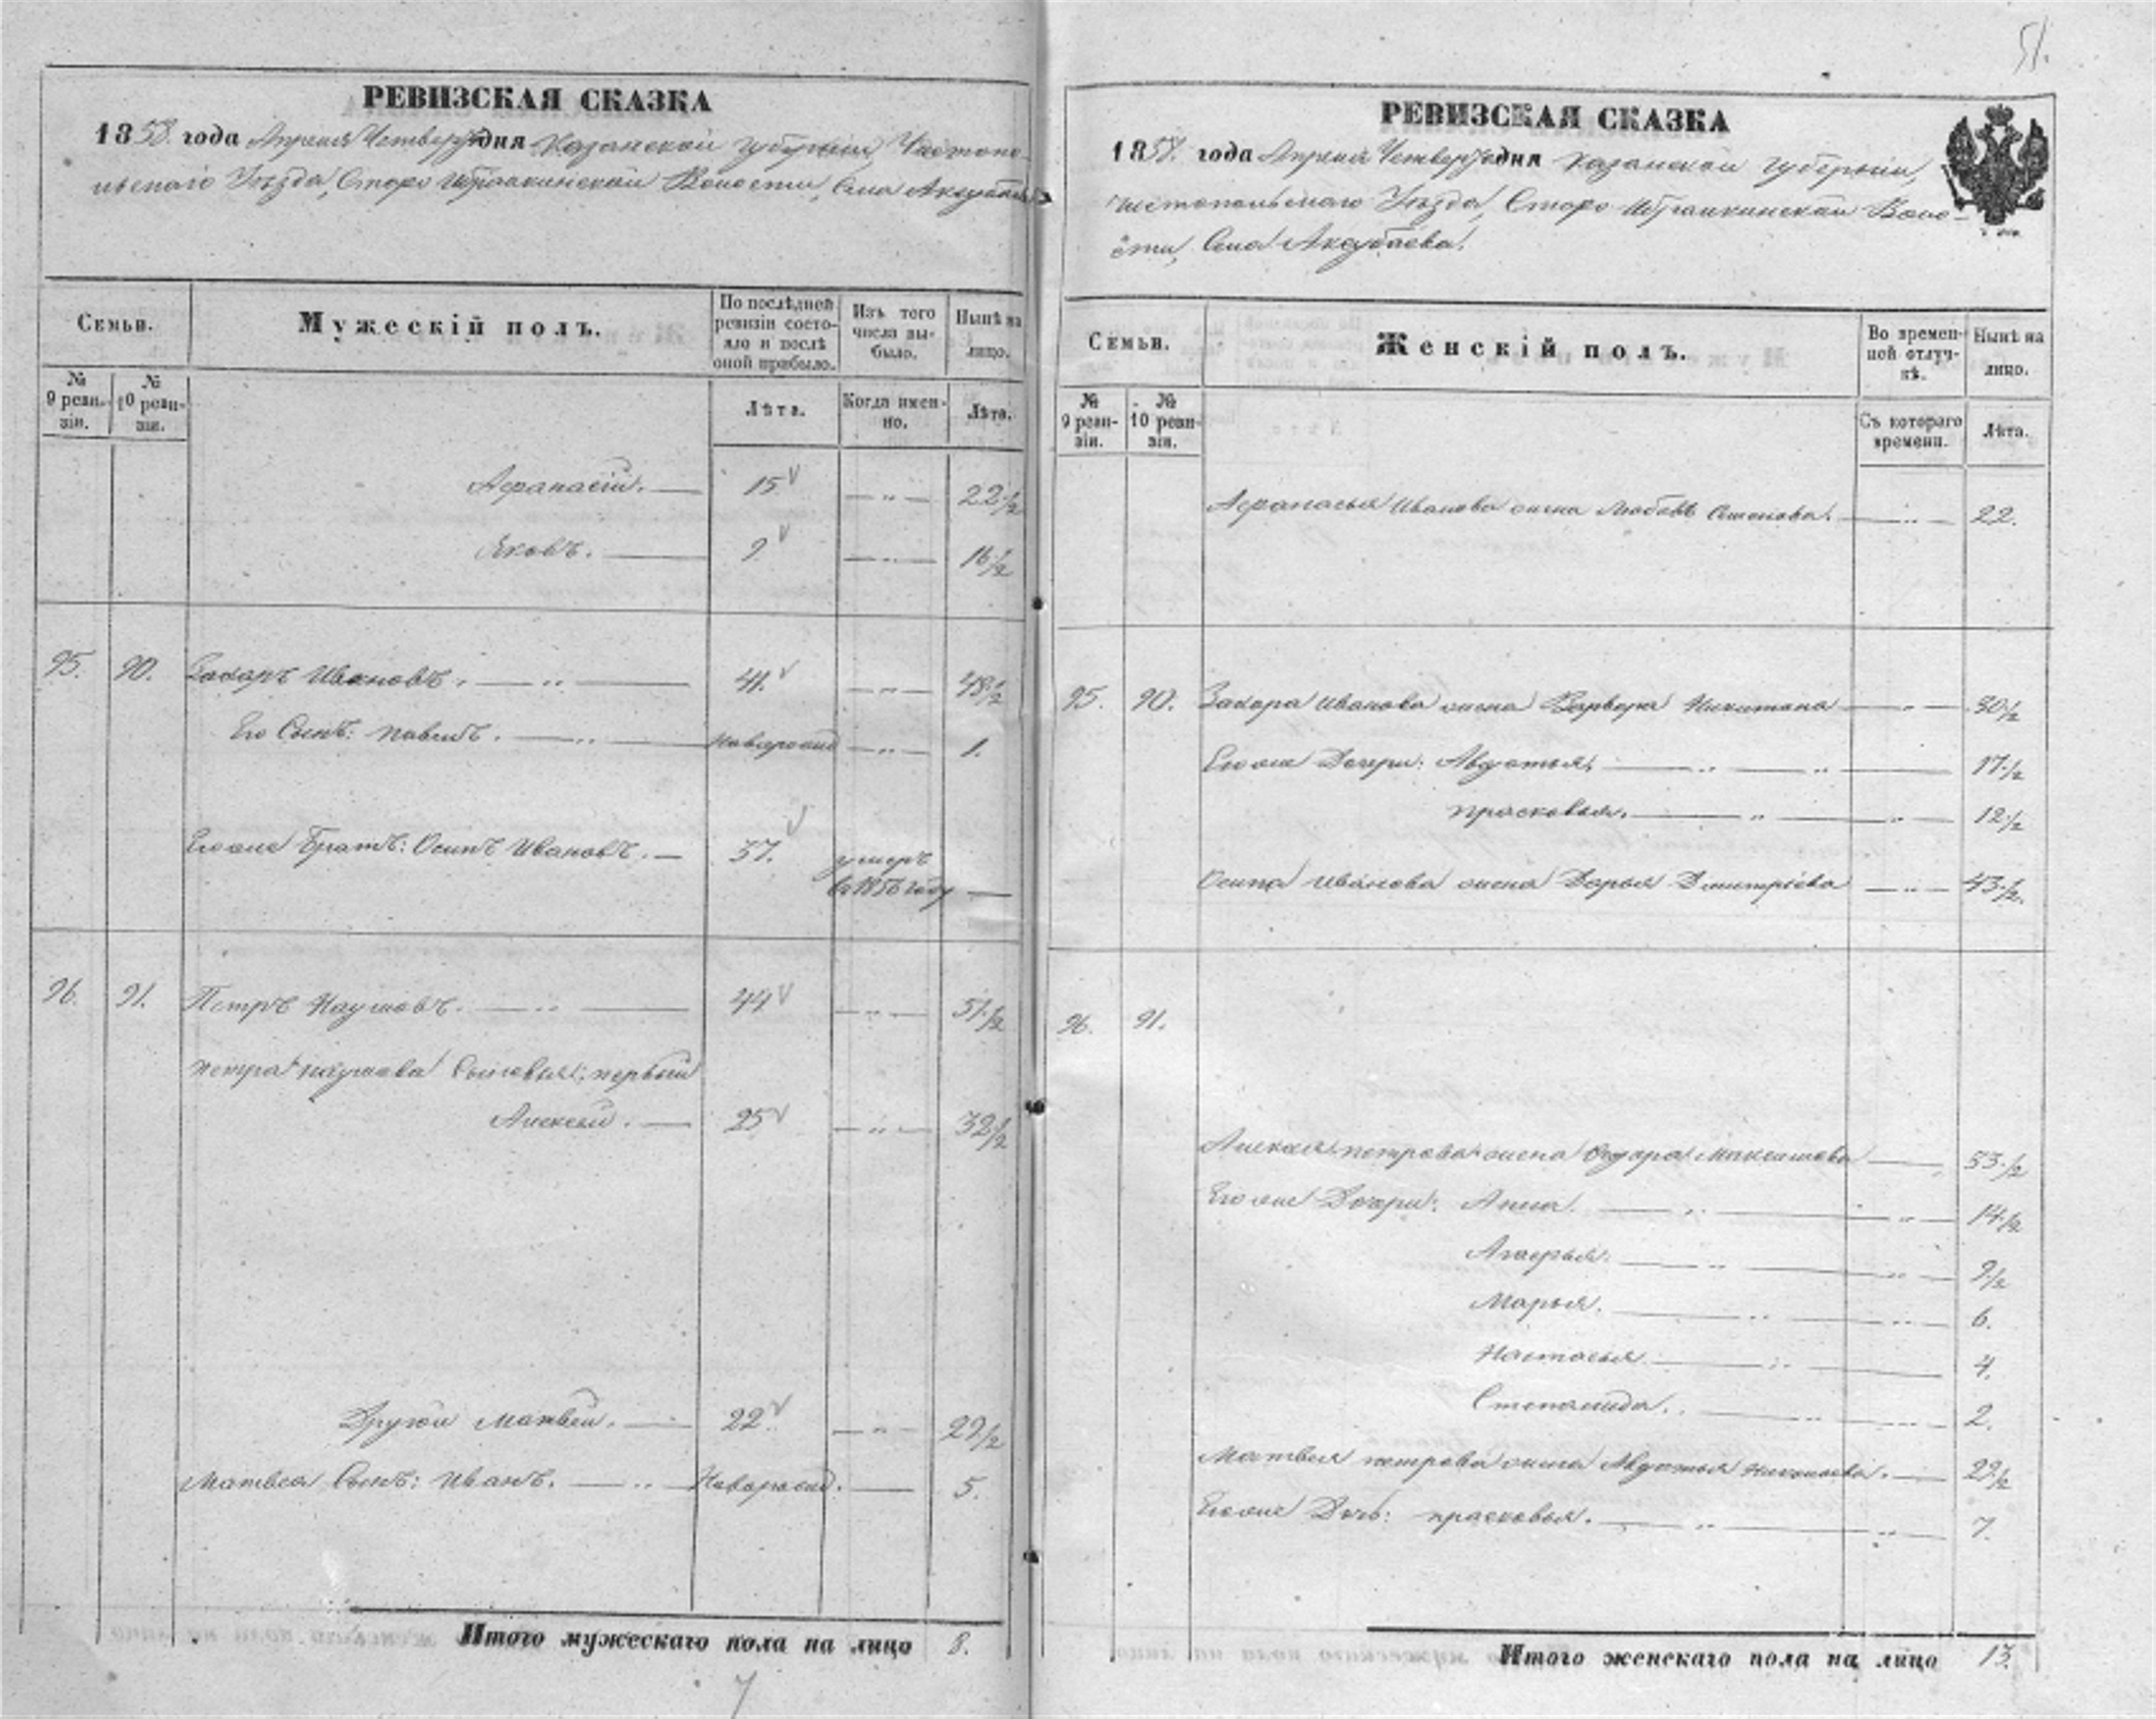 51.
РЕВИЗСКАЯ СКАЗКА
1858 года Апреля Четвертого дня Казанской губернiи, Чистопо-
льскаго Уѣзда, Старо Ибрайкинской Волости, Села Аксубаева
Семьи.
Мужескiй полъ.
По послѣдней ревизiи состояло и послѣ оной прибыло.
Изъ того числа выбыло.
Нынѣ на лицо.
№ 9 ревизiи.
№ 10 ревизiи.
Лѣта.
Когда именно.
Лѣта.
Афанасiй. 15 22 1/2
Яковъ. 9 16 1/2
95. 90. Захаръ Ивановъ. 41. 48 1/2
Его Сынъ: Павелъ. Новорожд 1.
Егоже Братъ: Осипъ Ивановъ. 37. умеръ
въ 1856 году
96. 91. Петръ Наумовъ. 44 51 1/2
Петра Наумова Сыновья: первый
Алексей. 25 32 1/2
Другой Матвей. 22 29 1/2
Матвея Сынъ: Иванъ. Новорожд. 5.
Итого мужескаго пола на лицо 8.
7
РЕВИЗСКАЯ СКАЗКА
1858. года Апреля Четвертого дня Казанской губернiи,
Чистопольскаго Уѣзда, Старо Ибрайкинской Воло-
сти, Села Аксубаева.
Семьи.
Женскiй полъ.
Во временной отлучкѣ.
Нынѣ на лицо.
№ 9 ревизiи.
№ 10 ревизiи.
Съ котораго времени.
Лѣта.
Афанасья Иванова жена Любовь Семенова. 22.
95. 90. Захара Иванова жена Варвара Никитина 30 1/2
Егоже Дочери: Авдотья. 17 1/2
Прасковья. 12 1/2
Осипа Иванова жена Дарья Дмитрiева 43 1/2.
96. 91.
Алексея Петрова жена Максимова 33 1/2
Егоже Дочери: Анна. 14 1/2
9 1/2
Марья. 6.
Настасья 4.
Степанида. 2.
Матвея Петрова жена Авдотья Николаева. 29 1/2
Егоже Дочь: Прасковья. 7.
Итого женскаго пола на лицо 13.